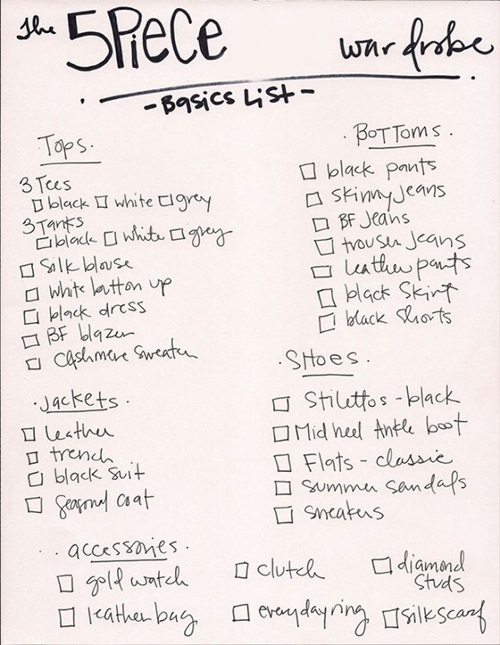 The 5 PIECE wardrobe
- Basics List -
Tops.
3 Tees
black white grey
3 Tanks
black white grey
Silk blouse
white button up
black dress
BF blazer
Cashmere sweater
· Jackets ·
leather
trench
black suit
Seasonal coat
· BOTTOMS ·
black pants
Skinny Jeans
BF Jeans
trouser jeans
leather pants
black Skirt
black Shorts
· SHOES ·
Stilettos - black
Mid heel Ankle boot
Flats - classic
Summer sandals
sneakers
· accessories ·
gold watch clutch diamond studs
leather bag everyday ring silk scarf